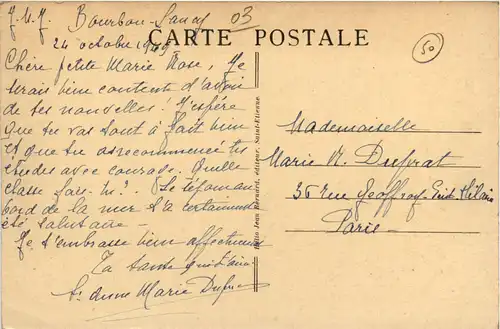 J.M.J. Bourbon-Lancy 03
24 octobre 1949
CARTE POSTALE
50
Chère petite Marie Rose, Je
serais bien contente d'avoir
de tes nouvelles ! J'espère
que tu vas tout à fait bien
et que tu as recommencé tes
études avec courage. Quelle
classe fais-tu ? Le séjour au
bord de la mer t'a certainement
été salutaire -
Je t'embrasse bien affectueusement
Ta tante qui t'aime
Sr Anne Marie Duprat
Jean Bernard, éditeur, Saint-Etienne.
Mademoiselle
Marie R. Duprat
36 rue Geoffroy Saint Hilaire
Paris -